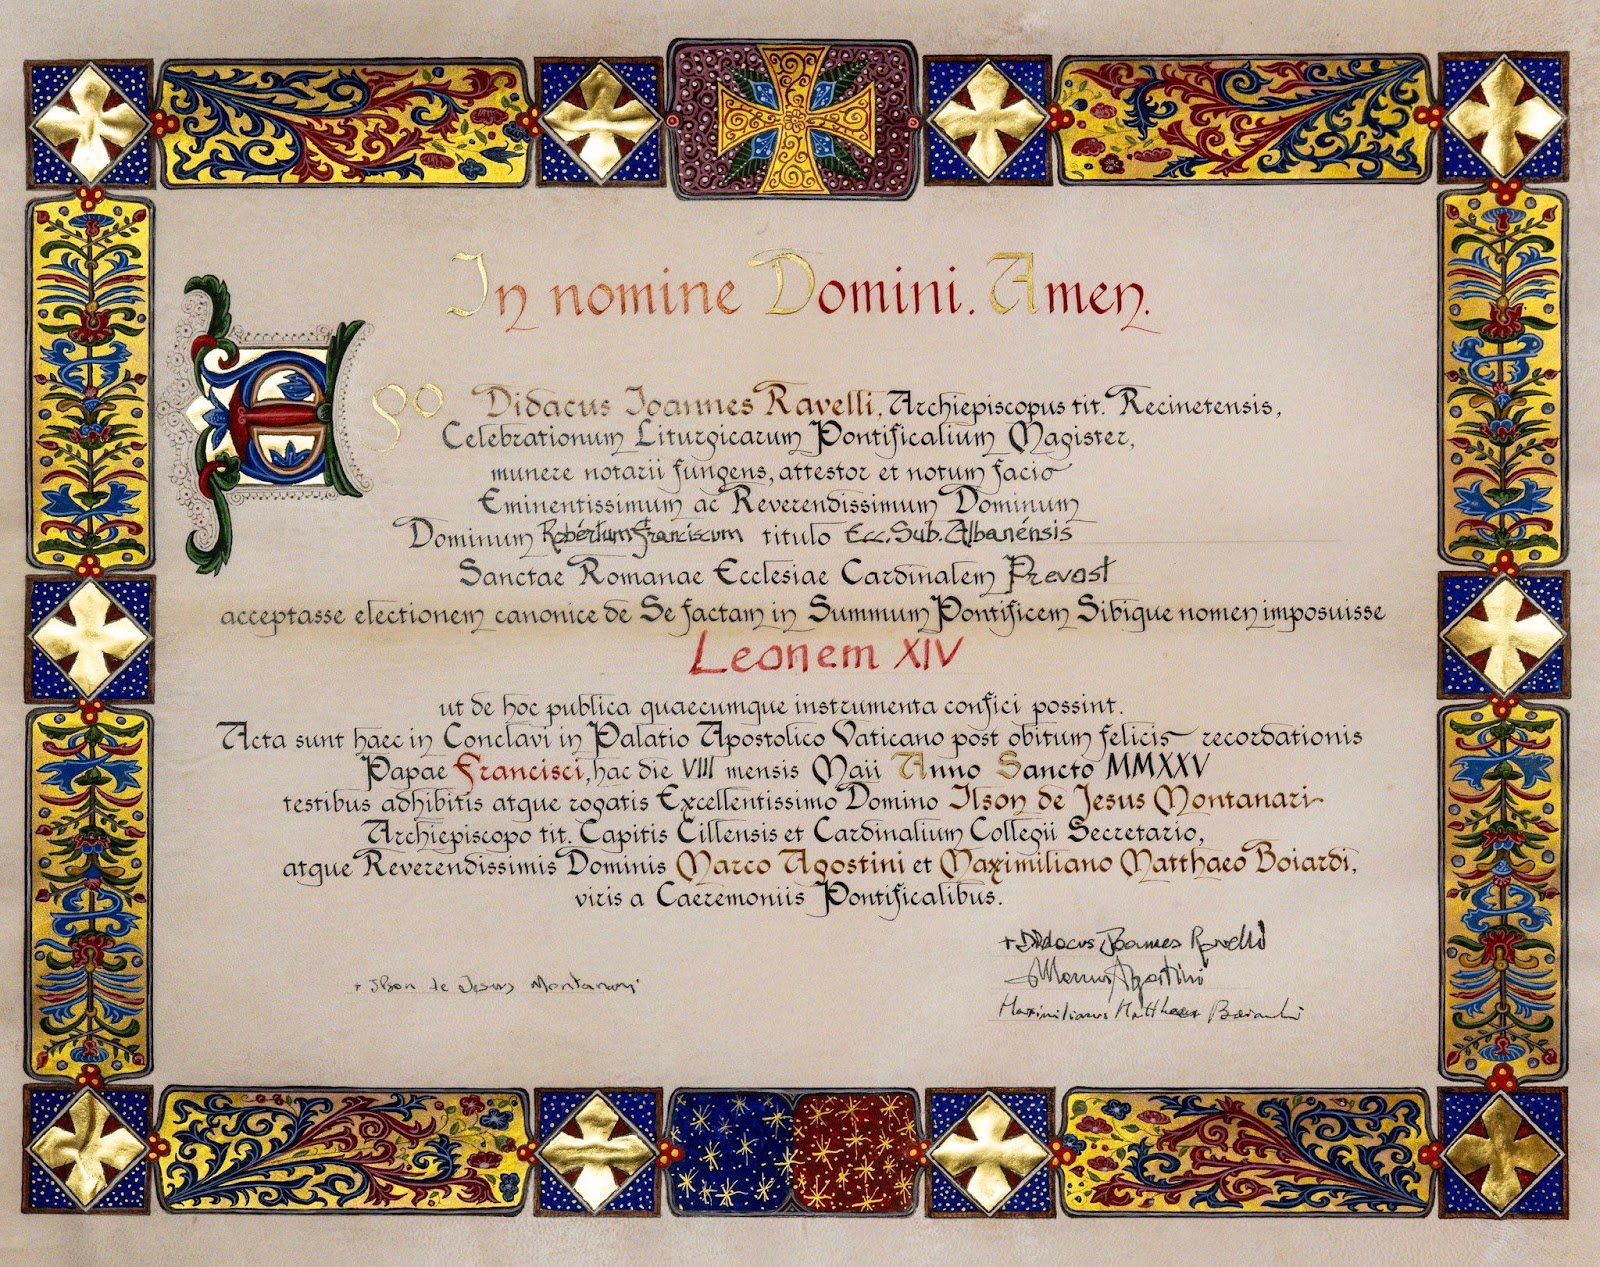 In nomine Domini. Amen.
Ego Didacus Ioannes Ravelli, Archiepiscopus tit. Recinetensis,
Celebrationum Liturgicarum Pontificalium Magister,
munere notarii fungens, attestor et notum facio
Eminentissimum ac Reverendissimum Dominum
Dominum Robertum Franciscum titulo Ecc. Sub. Albanénsis
Sanctae Romanae Ecclesiae Cardinalem Prevost
acceptasse electionem canonice de Se factam in Summum Pontificem Sibique nomen imposuisse
Leonem XIV
ut de hoc publica quaecumque instrumenta confici possint.
Acta sunt haec in Conclavi in Palatio Apostolico Vaticano post obitum felicis recordationis
Papae Francisci, hac die VIII mensis Maii Anno Sancto MMXXV
testibus adhibitis atque rogatis Excellentissimo Domino Ilson de Jesus Montanari
Archiepiscopo tit. Capitis Cillensis et Cardinalium Collegii Secretario,
atque Reverendissimis Dominis Marco Agostini et Maximiliano Matthaeo Boiardi,
viris a Caeremoniis Pontificalibus.
+ Didacus Joannes Ravelli
Marcus Agostini
+ Ilson de Jesus Montanari
Maximilianus Matthaeus Boiardi